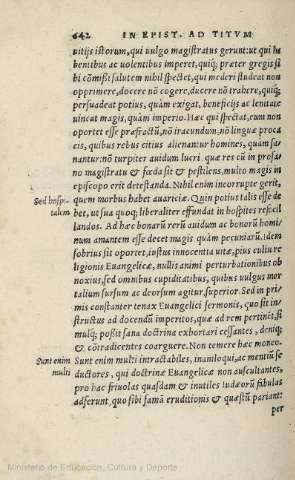 642 IN EPIST. AD TITVM
vitijs istorum, qui vulgo magistratus gerunt: ut qui ha
bentibus ac volentibus imperet, quiq; præter gregis si
bi cõmissi salutem nihil spectet, qui mederi studeat non
opprimere, docere nõ cogere, ducere nõ trahere, quiq;
persuadeat potius, quàm exigat, beneficijs ac lenitate
vincat magis, quàm imperio. Hæc qui spectat, eum non
oportet esse præfractũ, nõ iracundum, nõ linguæ proca
cis, quibus rebus citius alienantur homines, quàm sa-
nantur: nõ turpiter avidum lucri. quæ res cũ in profa-
no magistratu & fœda sit & pestilens, multo magis in
episcopo erit detestanda. Nihil enim incorrupte gerit,
Sed hospi-
talem
quem morbus habet avariciæ. Quin potius talis esse de
bet, ut sua quoq; liberaliter effundat in hospites refocil
landos. Ad hæc bonarũ rerũ avidum ac bonorũ homi-
num amantem esse decet magis quàm pecuniarũ. idem
sobrius sit oportet, iustus innocentia vitæ, pius cultu re
ligionis Evangelicæ, nullis animi perturbationibus ob
noxius, sed omnibus cupiditatibus, quibus vulgus mor
talium sursum ac deorsum agitur superior. Sed in pri-
mis constanter tenax Evangelici sermonis, quo sit in-
structus ad docendũ imperitos, quæ ad rem pertinẽt, si
mulq; possit sana doctrina exhortari cessantes, deniq;
& cõtradicentes coarguere. Non temere hæc moneo.
Sunt enim
multi
Sunt enim multi intractabiles, inaniloqui, ac mentiũ se
ductores, qui doctrinæ Evangelicæ non auscultantes,
pro hac frivolas quasdam & inutiles Iudæorũ fabulas
adferunt quo sibi famã eruditionis & quæstũ pariant:
per
Ministerio de Educación, Cultura y Deporte